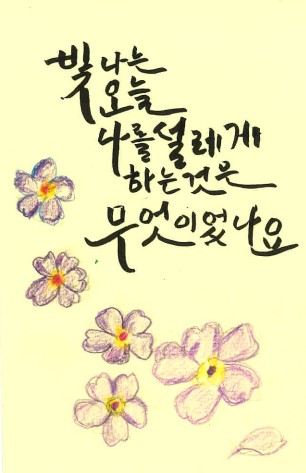 빛나는
오늘
나를 설레게
하는것은
무엇이었나요